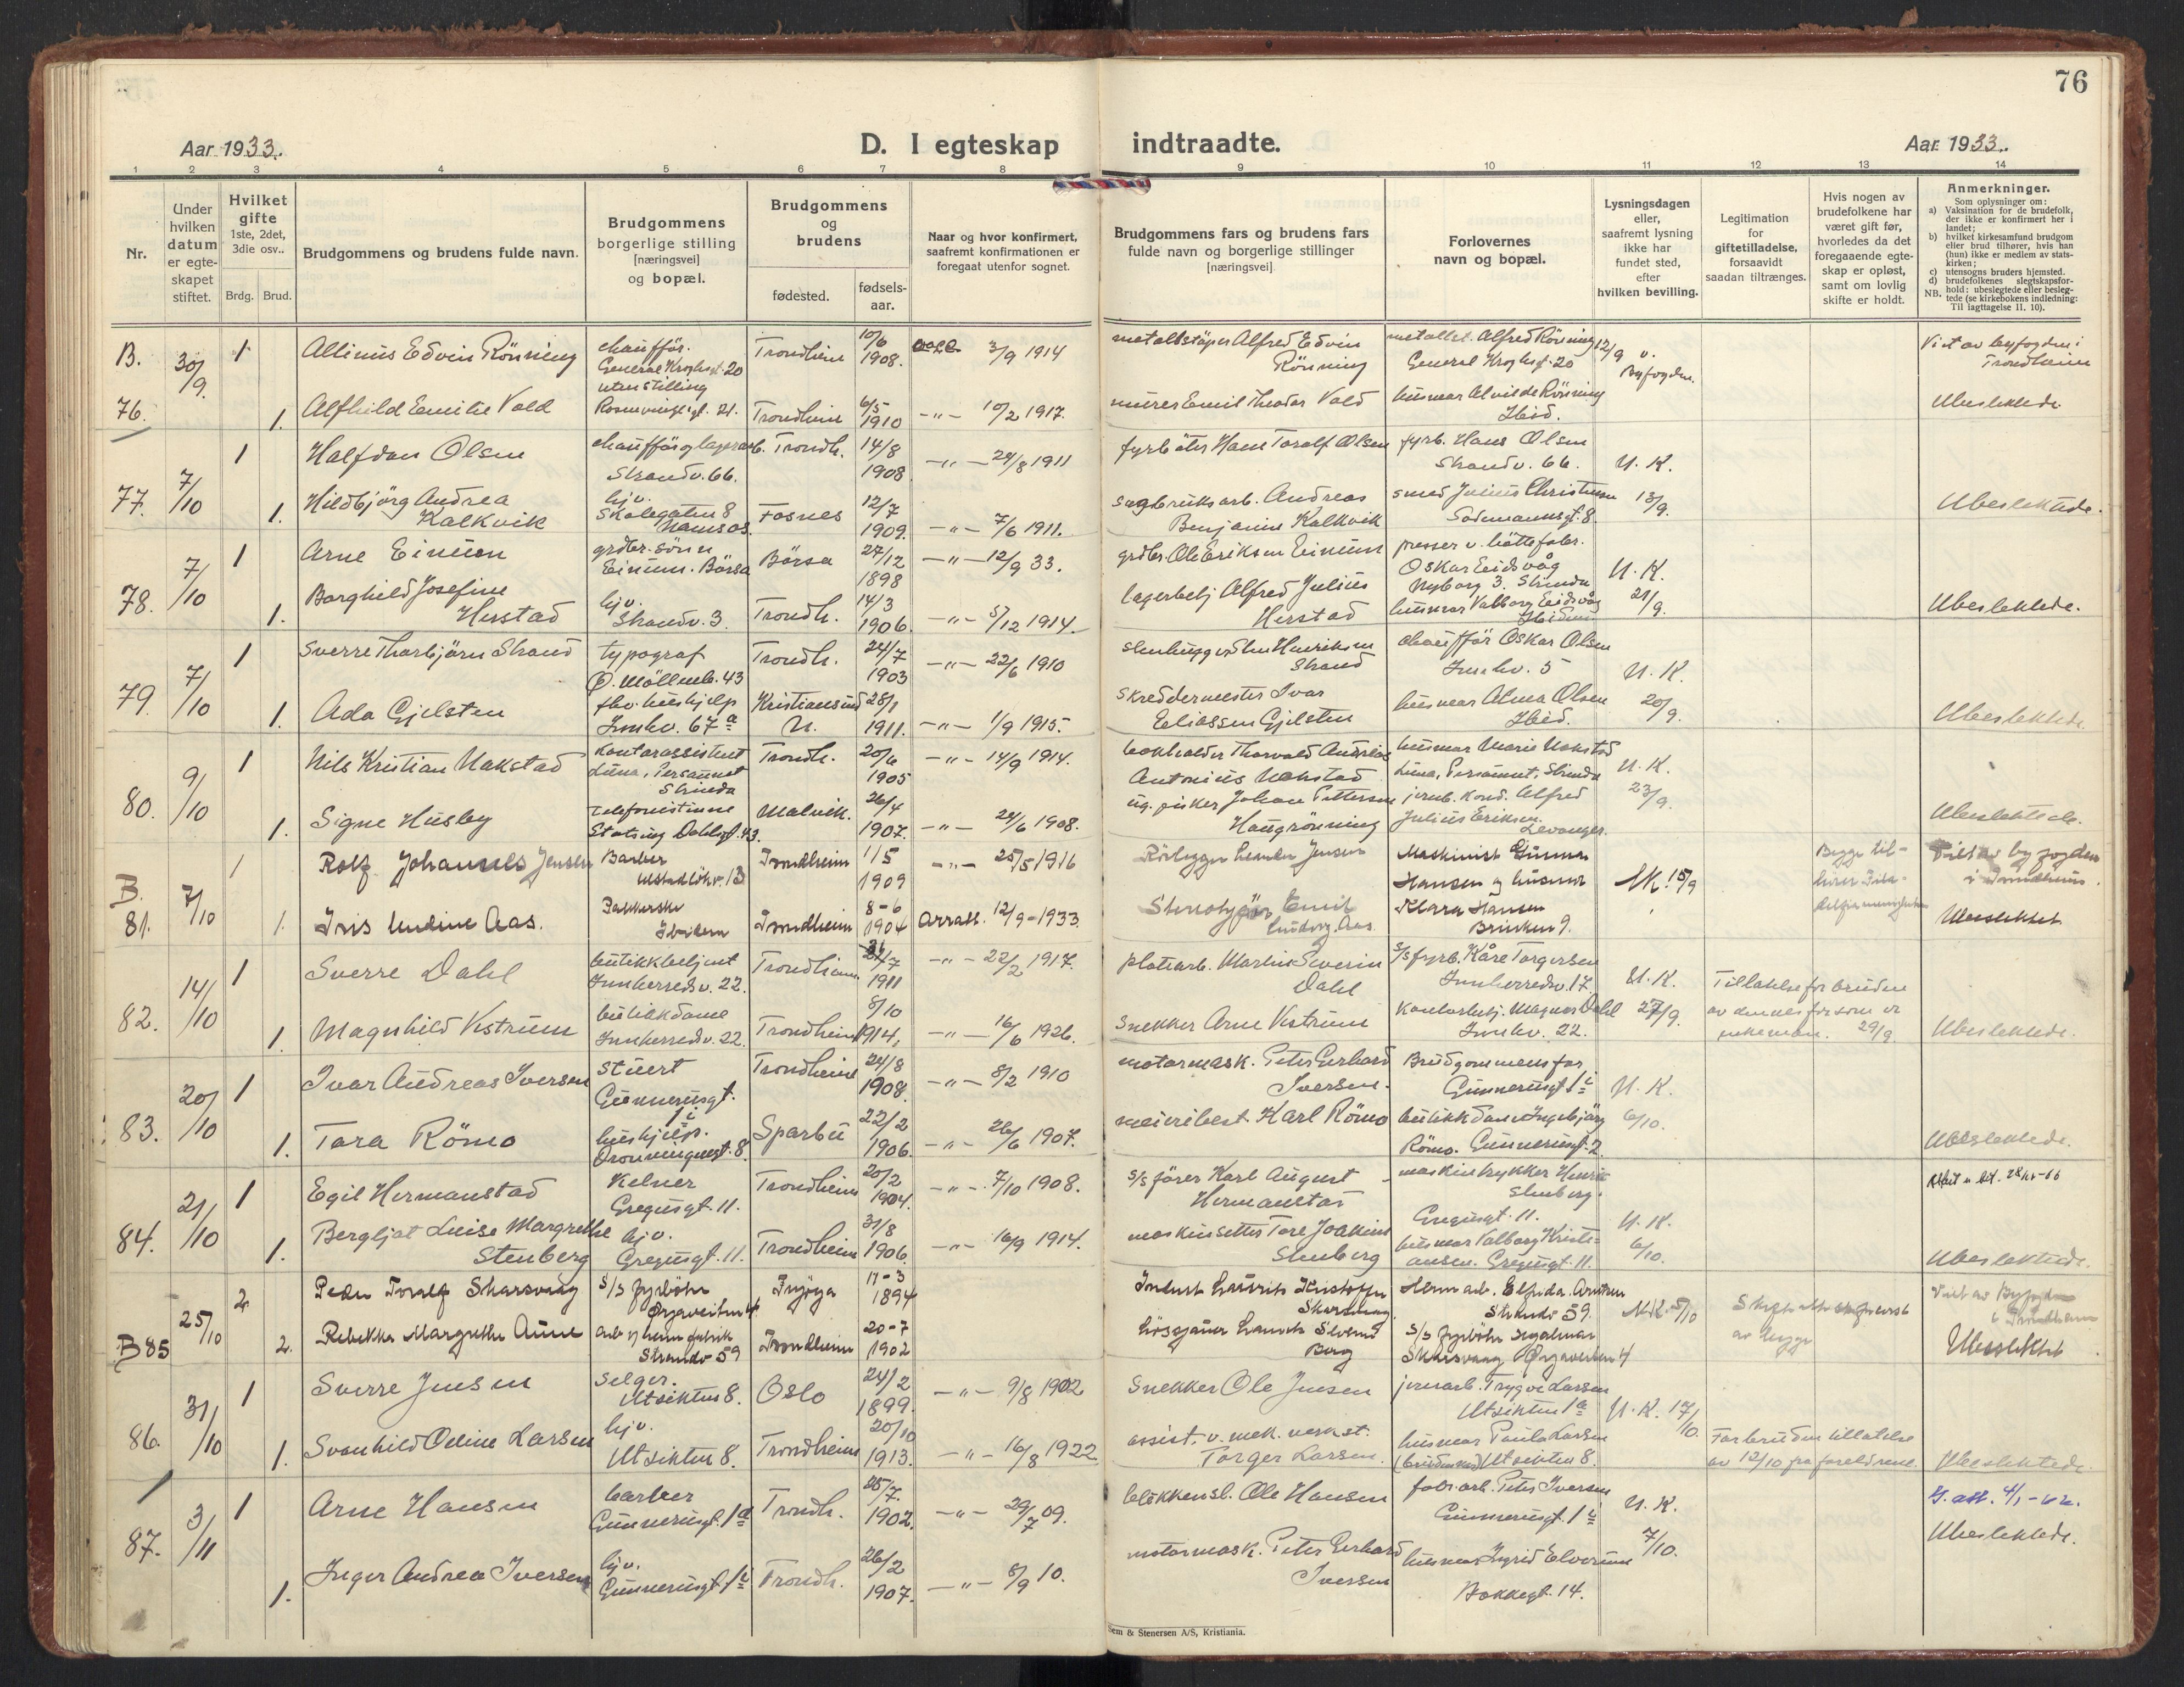 76
Aar 1933.
D. I egteskap indtraadte.
Aar 1933.
1 2 3 4 5 6 7 8 9 10 11 12 13 14
Nr.
Under hvilken datum er egteskapet stiftet.
Hvilket gifte 1ste, 2det, 3die osv..
Brdg. Brud.
Brudgommens og brudens fulde navn.
Brudgommens borgerlige stilling [næringsvei] og bopæl.
Brudgommens og brudens
fødested.
fødsels-aar.
Naar og hvor konfirmert, saafremt konfirmationen er foregaat utenfor sognet.
Brudgommens fars og brudens fars fulde navn og borgerlige stillinger [næringsvei].
Forlovernes navn og bopæl.
Lysningsdagen eller, saafremt lysning ikke har fundet sted, efter hvilken bevilling.
Legitimation for giftetilladelse, forsaavidt saadan tiltrænges.
Hvis nogen av brudefolkene har været gift før, hvorledes da det foregaaende egteskap er opløst, samt om lovlig skifte er holdt.
Anmerkninger.
Som oplysninger om:
a) Vaksination for de brudefolk, der ikke er konfirmert her i landet;
b) hvilket kirkesamfund brudgom eller brud tilhører, hvis han (hun) ikke er medlem av statskirken;
c) utensogns bruders hjemsted.
d) brudefolkenes slegtskapsforhold: ubeslegtede eller beslegtede (se kirkebokens indledning: Til iagttagelse II. 10).
NB.
B. 76. 30/9. 1 Allinus Edvin Rönning chauffør. General Kroghsgt. 20 Trondheim 10/6 1908. 3/9 1914 metallstöper Alfred Edvin Rönning metallst. Alfred Rönning General Kroghsgt. 20 12/9 v. Byfogden. Viet av byfogden i Trondheim
1. Alfhild Emilie Vold uten stilling Trondheim 6/5 1910 -"- 10/2 1917. murer Emil Theodor Vold husmor Alvilde Rönning Ibid. Ubeslektede
77. 7/10 1 Halfdan Olsen chauffør og lagerarb. Strandv. 66. Trondh. 14/8 1908 -"- 24/8 1911 fyrböter Hans Toralf Olsen fyrb. Hans Olsen Strandv. 66. U. K.
1. Hildbjörg Andrea Kalkvik hjv. Skolegaten 8 Namsos. Fosnes 12/7 1909. -"- 7/6 1911. sagbruksarb. Andreas Benjamin Kalkvik smed Julius Christensen 13/9. Ubeslektede.
78. 7/10 1 Arne Einum grdbr. sönn Einum. Börsa Börsa 27/12 1898 -"- 12/9 33. grdbr. Ole Eriksen Einum presser v. hattefabr. Oskar Eidsvåg Nyborg 3, Strinda U. K.
1. Borghild Josefine Herstad hjv. Strandv. 3. Trondh. 14/3 1906. -"- 5/12 1914. lagerbetj. Alfred Julius Herstad husmor Valborg Eidsvåg Ibidem 21/9. Ubeslektede.
79. 7/10 1 Sverre Thorbjörn Strand typograf Ö. Möllenb. 43 Trondh. 24/7 1903 -"- 22/6 1910 Strand chauffør Oskar Olsen Innhv. 5 U. K.
1. Ada Gjelsten Innhv. 67a Kristiansund N. 28/1 1911. -"- 1/9 1915. skreddermester Ivar Eliassen Gjelsten husmor Alma Olsen Ibid. 20/9. Ubeslektede.
80. 9/10 1 Nils Kristian Hakstad kontorassistent Strinda Trondh. 20/6 1905 -"- 14/9 1914. bokholder Thorvald Andreas Antonius Hakstad husmor Marie Hakstad Strinda U. K.
1. Signe Husby telefonistinne Malvik. 26/4 1907. -"- 24/6 1908. Johan Pettersen Haugrönning jernb. kond. Alfred Julius Eriksen. Levanger. 23/9. Ubeslektede.
B. 81. 7/10 1 Rolf Johannes Jensen Barber Trondheim 1/5 1909 -"- 25/5 1916 Rörlegger Leander Jensen Maskinist Gunnar Hansen og husmor Klara Hansen 15/9 Viet av byfogden i Trondheim.
1. Iris Undine Aas. Pakkerske Ibidem Trondheim 8-6 1904 12/9-1933. Stereotypör Emil Ludvig Aas Ubeslektet
82. 14/10 1 Sverre Dahl butikkbetjent Innherredsv. 22. Trondheim 1911 -"- 22/2 1917. platearb. Martin Severin Dahl s/s fyrb. Kåre Torgersen Innherredsv. 17. U. K. Tillatelse for bruden
1. Magnhild Vestrum butikkdame Innherredsv. 22. Trondheim 8/10 1914. -"- 16/6 1926. snekker Arne Vestrum Kontorbetj. Magnus Dahl Innhv. 22. 27/9. 29/9 Ubeslektede.
83. 20/10 1 Ivar Andreas Iversen stuert Gunnerusgt. 1c Trondheim 24/8 1908. -"- 8/2 1910 motormask. Peter Gerhard Iversen. Brudgommens far Gunnerusgt 1c U. K.
1. Tora Römo hushjelp. Dronningensgt. 8. Sparbu 22/2 1906. -"- 26/6 1907. meieribest. Karl Römo butikkdame Ingebjörg Römo. Gunnerusgt. 2 6/10. Ubeslektede.
84. 21/10 1 Egil Hermanstad Kelner Gregusgt. 11. Trondheim 20/2 1904. -"- 7/10 1908. s/s förer Karl August Hermanstad maskintrykker Henrik Stenberg. Gregusgt. 11. U. K.
1. Bergljot Luise Margrethe Stenberg hjv. Gregusgt. 11. Trondheim 31/8 1906. -"- 16/9 1914. maskinsetter Tore Joakim Stenberg husmor Valborg Kristiansen. Gregusgt. 11. 6/10. Ubeslektede.
B 85 25/10 2 Peder Toralf Skarsvaag s/s fyrböter Frøya 11-3 1894 Skarsvaag Strandv 59. 5/10 Viet av Byfogden i Trondheim
2. Rebekka Margrethe Aune Strandv 59 Trondheim 20-7 1902 Berg s/s fyrböter Skarsvaag Ubeslektet
86. 31/10 1 Sverre Jensen selger. Utsikten 8. Oslo 24/2 1899. -"- 9/8 1902 Snekker Ole Jensen jernarb. Trygve Larsen Utsikten 1a U. K. 17/10.
1. Svanhild Odine Larsen hjv. Utsikten 8. Trondheim 20/10 1913. -"- 16/8 1922 assist. v. mek. verkst. Torger Larsen. husmor Paula Larsen Utsikten 8. For bruden tillatelse av 12/10 fra foreldrene. Ubeslektede.
87. 3/11 1 Arne Hansen barber Gunnerusgt. 1a Trondh. 25/7. 1902. -"- 29/7 09. blikkensl. Ole Hansen fabr. arb. Peter Iversen Gunnerusgt. 1c U. K.
1. Inger Andrea Iversen hjv. Gunnerusgt. 1c Trondh. 26/2 1907. -"- 8/9 10. motormask. Peter Gerhard Iversen husmor Ingrid Elverum Bakkegt. 14. 7/10. Ubeslektede.
Sem & Stenersen A/S, Kristiania.